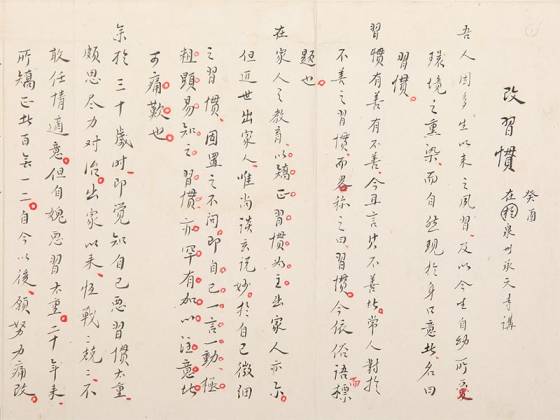 改習慣
癸酉
在泉州承天寺講
吾人因多生以來之夙習、及以今生自幼所受
環境之熏染、而自然現於身口意者、名曰
習慣。
習慣有善有不善、今且言其不善者。常人對於
不善之習慣、而畧称之曰習慣。今依俗語而標
題也。
在家人之教育、以矯正習慣為主。出家人亦尔。
但近世出家人、惟尚談玄說妙。於自己微細
之習慣、固置之不問。即自己一言一動、極
粗顯易知之習慣、亦罕有加以注意者。
可痛歎也。
余於三十歲時、即覺知自己惡習慣太重、
頗思尽力對治。出家以來、恆戰〻兢〻、不
敢任情適意。但自愧惡習太重、二十年来、
所矯正者百無一二。自今以後、願努力痛改。